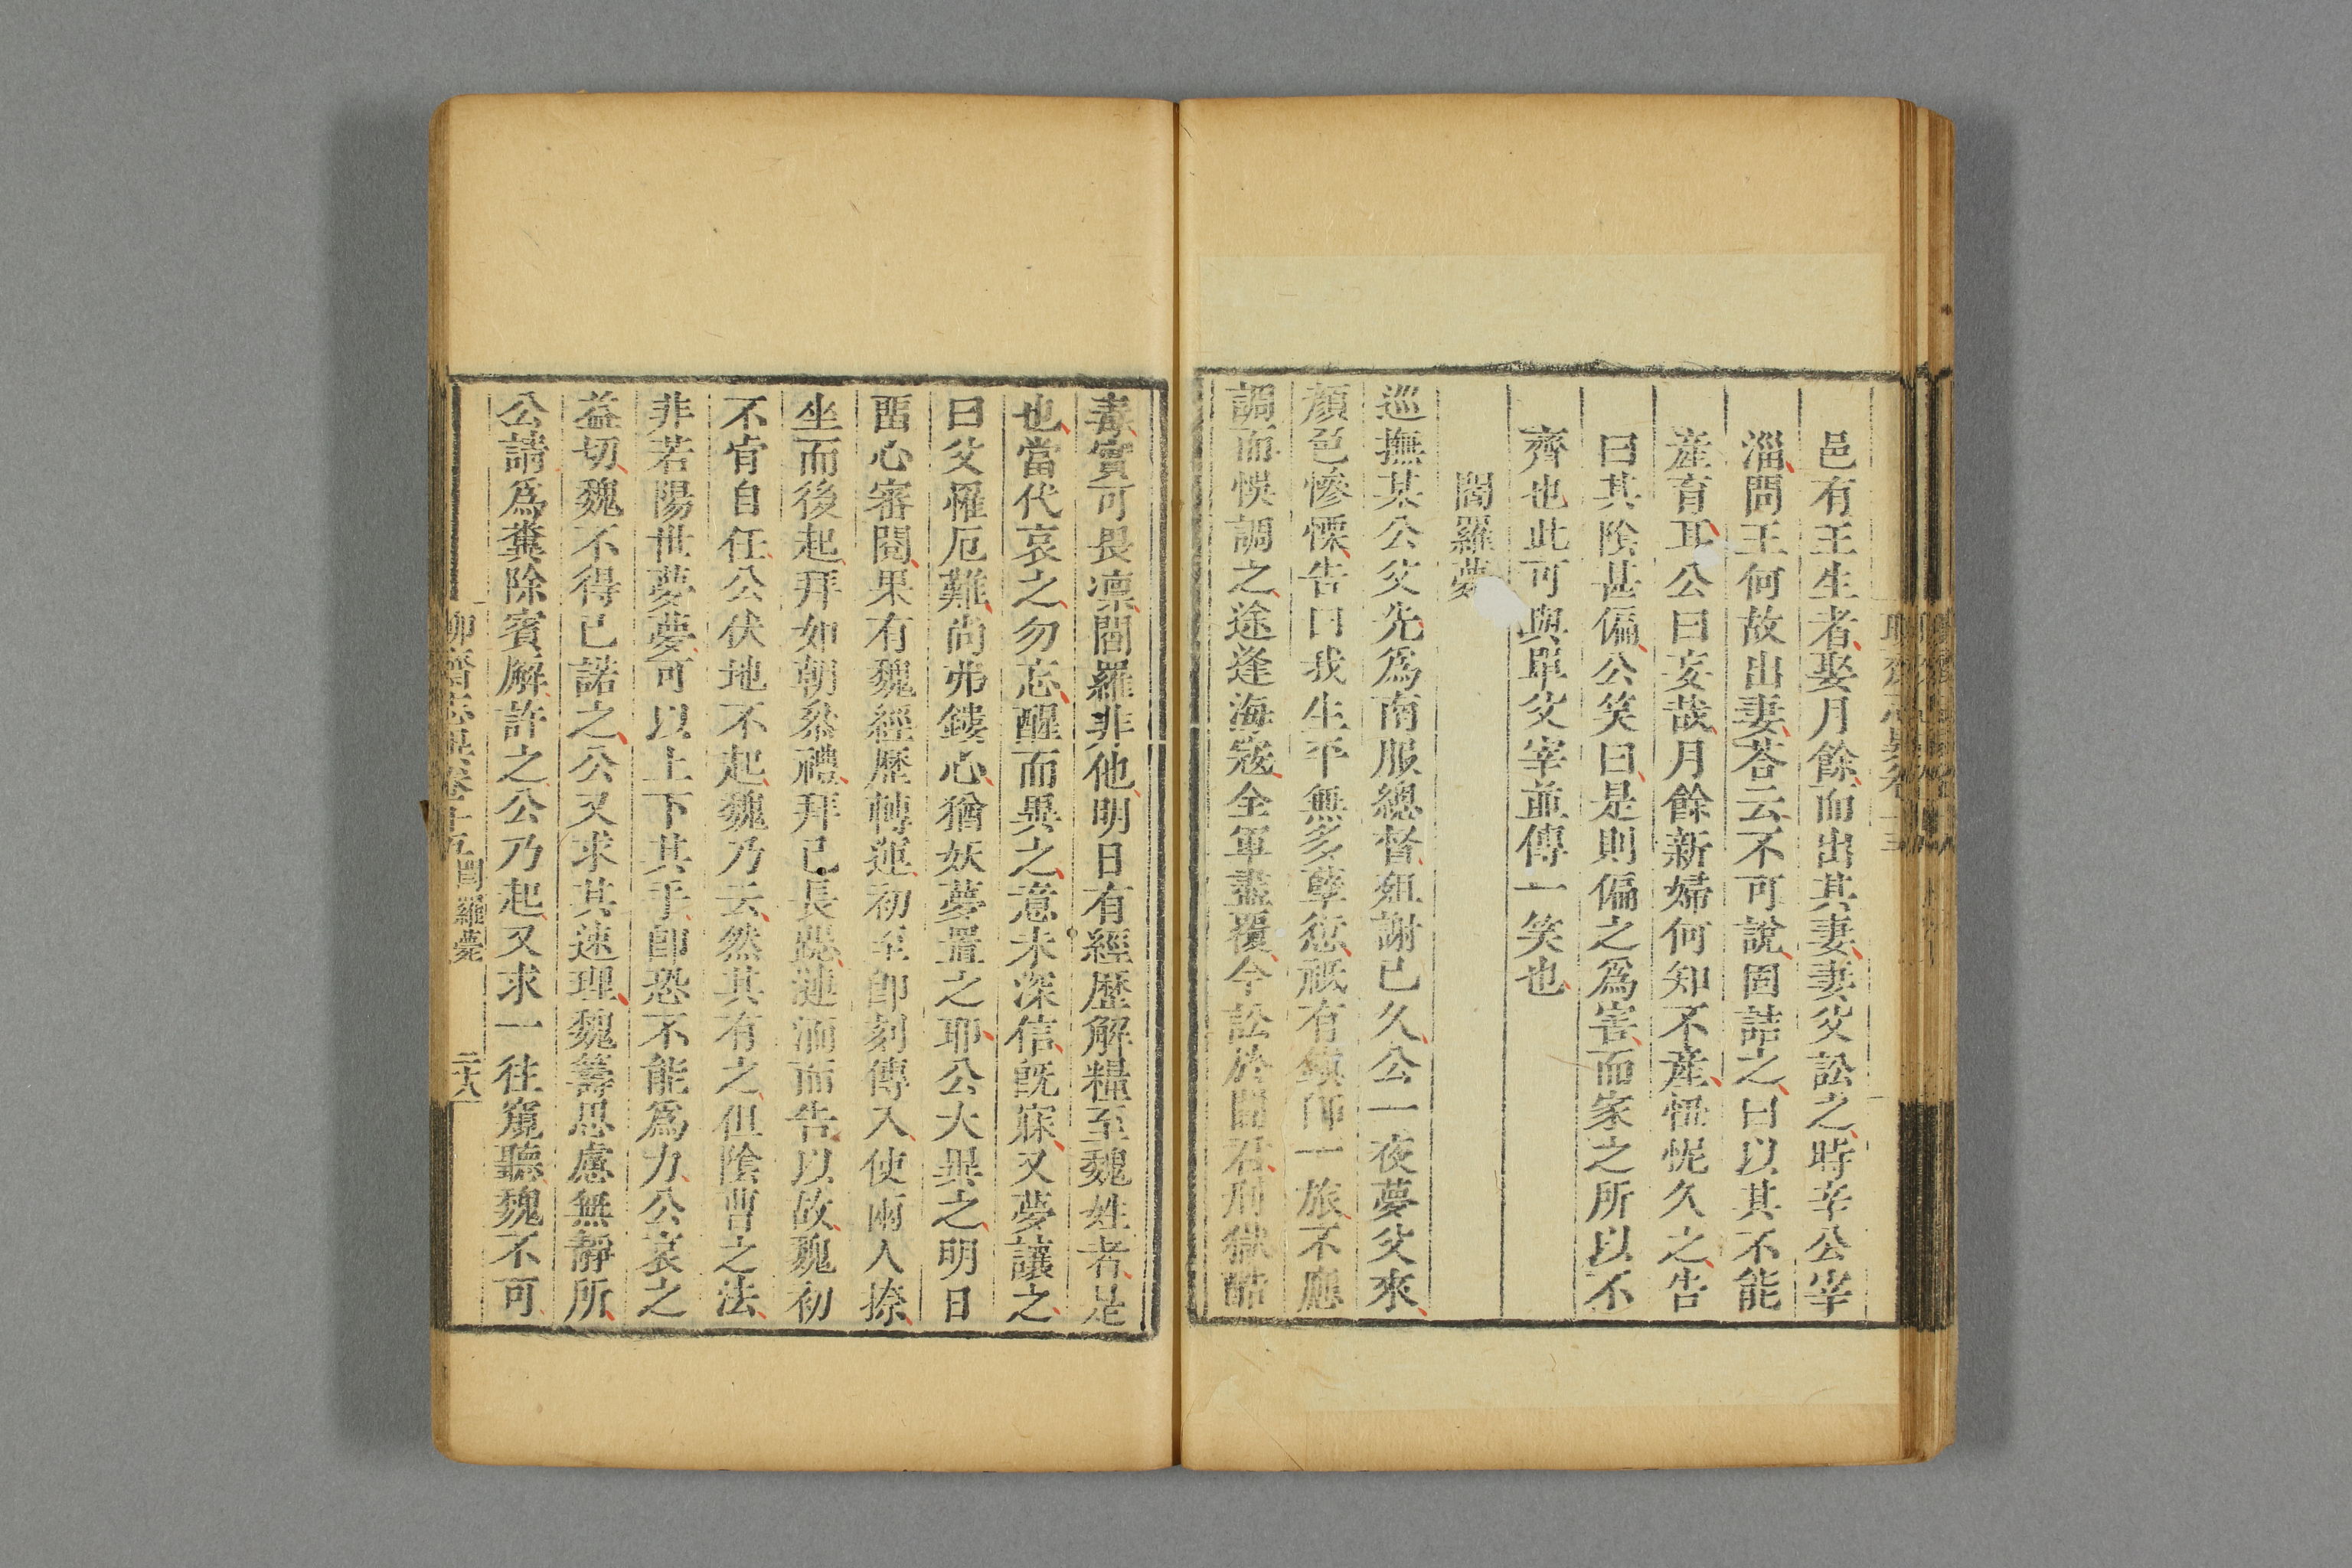 邑有王生者娶月餘而出其妻妻父訟之時辛公宰
淄問王何故出妻荅云不可說固詰之曰以其不能
産育耳公曰妄哉月餘新婦何知不産忸怩久之告
曰其陰甚偏公笑曰是則偏之爲害而家之所以不
齊也此可與單父宰並傳一笑也
閻羅夢
巡撫某公父先爲南服總督殂謝已久公一夜夢父來
顏色慘慄告曰我生平無多孽愆祇有鎮師一旅不應
調而悞調之途逢海寇全軍盡覆今訟於閻君刑獄酷
毒實可畏凛閻羅非他明日有經歷解糧至魏姓者是
也當代哀之勿忘醒而異之意未深信旣寐又夢讓之
曰父罹厄難尚弗鏤心猶妖夢置之耶公大異之明日
畱心審閱果有魏經歷轉運初至卽刻傳入使兩人捺
坐而後起拜如朝叅禮拜已長跽漣洏而告以故魏初
不肯自任公伏地不起魏乃云然其有之但陰曹之法
非若陽世夢夢可以上下其手卽恐不能爲力公哀之
益切魏不得已諾之公又求其速理魏籌思慮無靜所
公請爲糞除賓廨許之公乃起又求一往窺聽魏不可
聊齋志異卷十五 閻羅夢 二十八